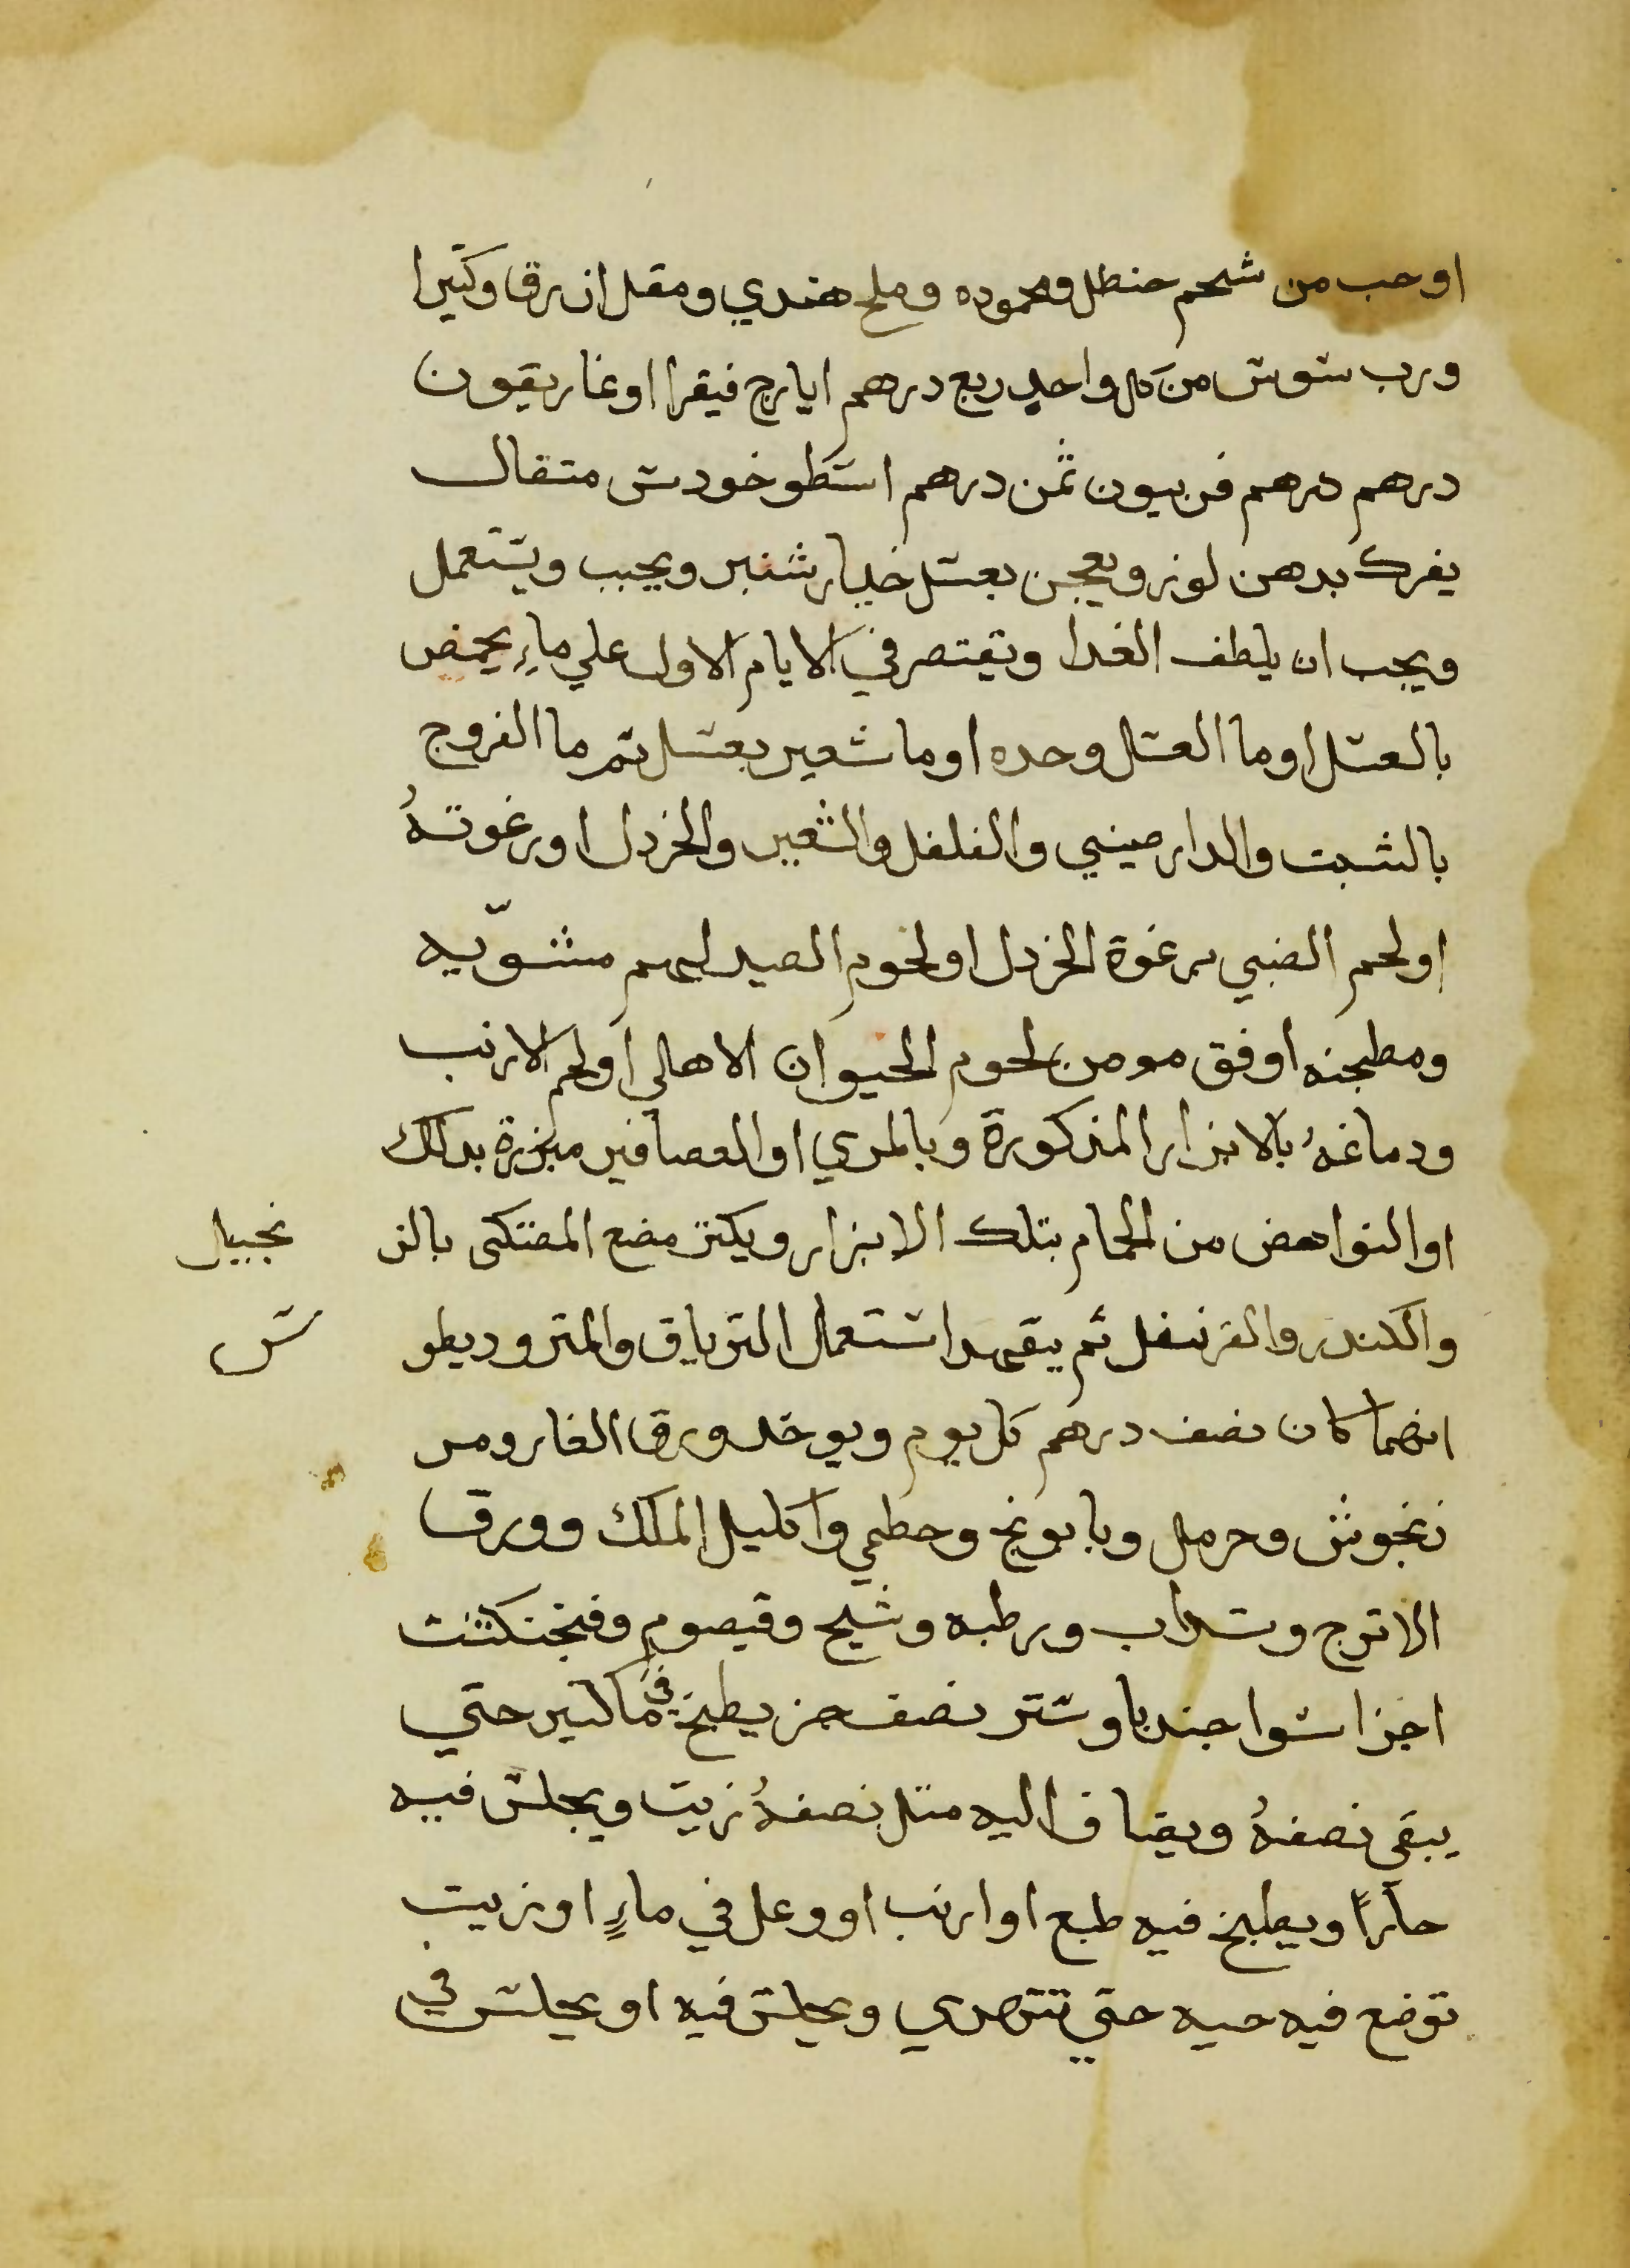 او حب من شحم حنظل ومحموده وملح هندي ومقل ازرق وكتيرا
ورب سوس من كل واحد ربع درهم ايارج فيقرا او غاريقون
درهم درهم فربيون ثمن درهم اسطوخودس متقال
يفرك بدهن لوز ويعجن بعسل خيار شنبر ويحبب ويستعمل
ويجب ان يلطف الغدا ويقتصر في الايام الاول علي ماء يحمض
بالعسل او ما العسل وحده او ما شعير بعسل تم ما الفروج
بالشبت والدارصيني والفلفل والشعير والخردل او رغوتهُ
او لحم الضبي برغوة الخردل او لحوم الصيد لهم مشوّيه
ومطبخنه اوفق مو من لحوم الحيوان الاهالي او لحم الارنب
ودماغهُ بالابزار المذكورة وبالمري او العصافير مبزرة بدلك
او النواهض من الحمام بتلك الابزار ويكتر مضع المصتكى بالز نجبيل
والكندر والقرنفل ثم يتعهد استعمال الترياق والمتروديطو س
ايهما كان نصف درهم كل يوم ويوخد ورق الغار ومر
زنجوش وحرمل وبابونج وحطمي واكليل الملك وورق
الاترج وسداب ورطبه وشيح وقيصوم وفنجنكشت
اجزا سوا جندباوستر نصف جز يطبخ في ما كتير حتي
يبقي نصفهُ ويضاف اليه متل نصفهُ زيت ويجلس فيه
حارًا ويطبخ فيه ضبع او ارنب او وعل في ماءٍ او زيت
توضع فيه حيه حتي تتهدي ويجلس فيه او يجلس في